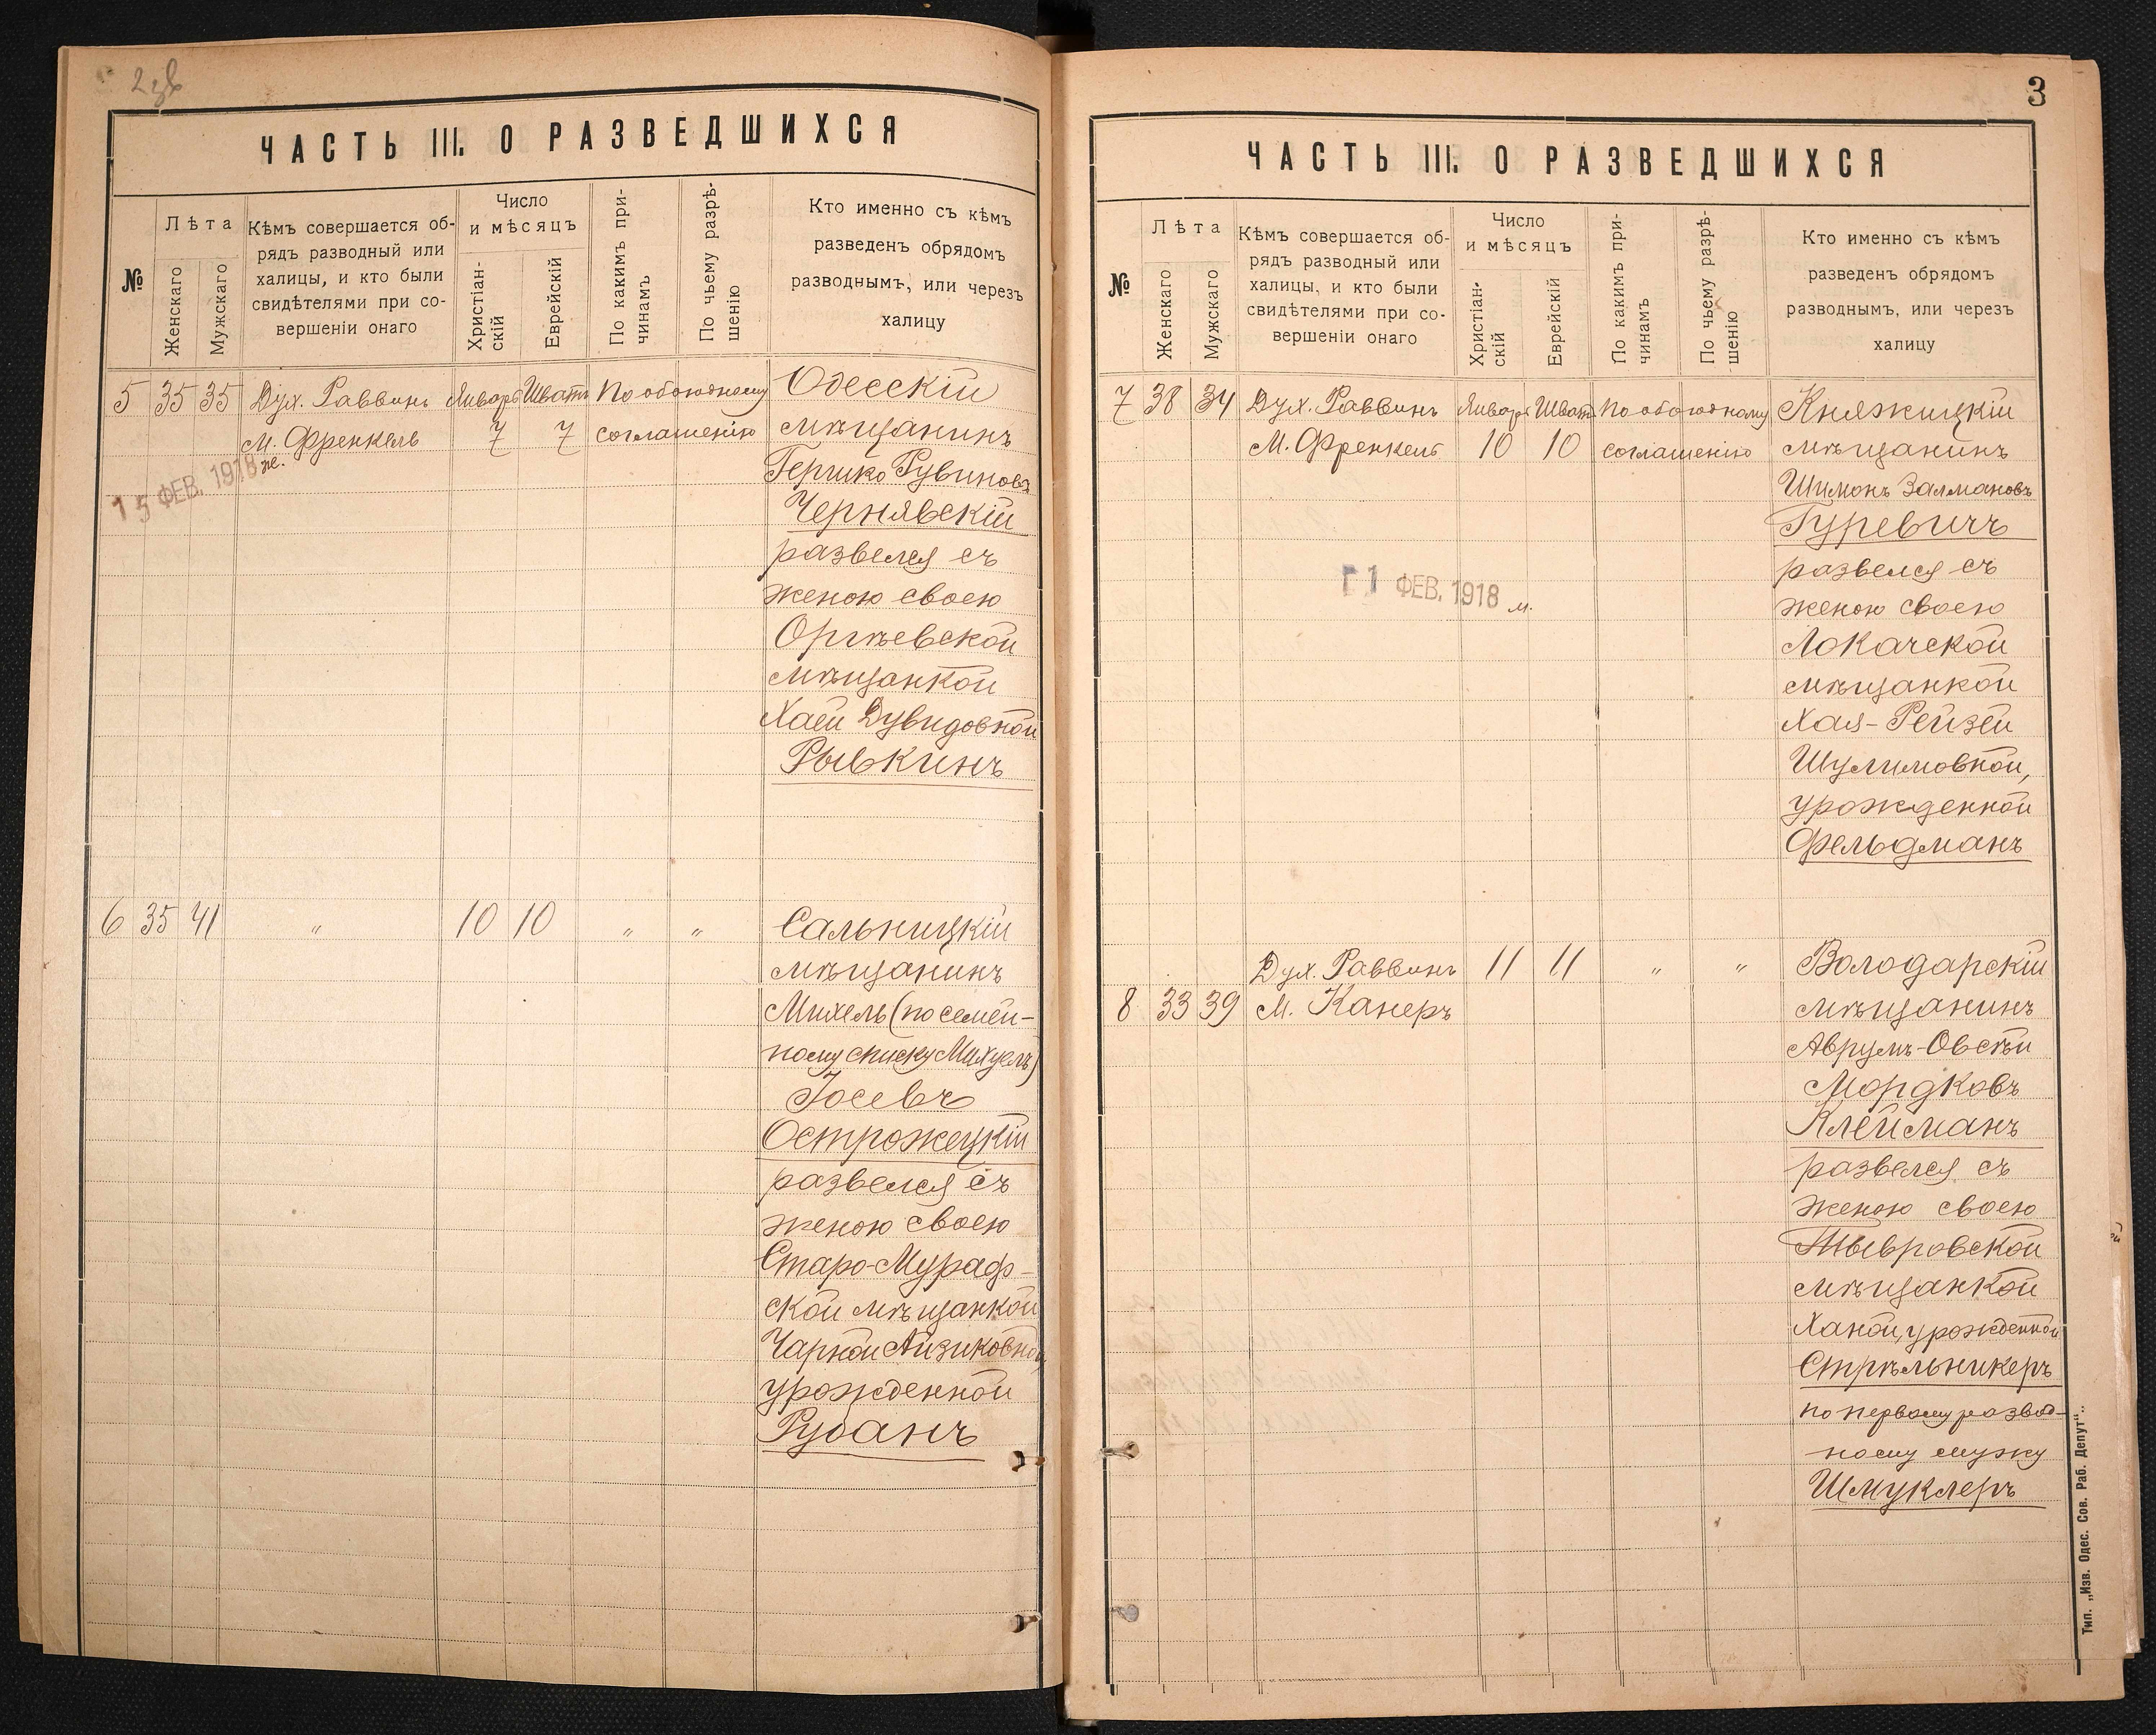 2 об
ЧАСТЬ III. О РАЗВЕДШИХСЯ
№
Лѣта
Женскаго
Мужскаго
Кѣмъ совершается об-
рядъ разводный или
халицы, и кто были
свидѣтелями при со-
вершеніи онаго
Число
и мѣсяцъ
Христіан-
скій
Еврейскій
По какимъ при-
чинамъ
По чьему разрѣ-
шенію
Кто именно съ кѣмъ
разведенъ обрядомъ
разводнымъ, или черезъ
халицу
5 35 35 Дух. Раввинъ Январь Шватъ По обоюдному Одесскій
М. Френкель 7 7 соглашенію мѣщанинъ
Гершко Рувиновъ
15 ФЕВ. 1918 ж.
Чернявскій
развелся съ
женою своею
Оргѣевской
мѣщанкой
Хаей Дувидовной
Рывкинъ
6 35 41 " 10 10 " " Сальницкій
мѣщанинъ
Михель (по семей-
ному списку Михуель)
Іосевъ
Острожецкій
развелся съ
женою своею
Старо-Мураф-
ской мѣщанкой
Чарной Айзиковной,
урожденной
Рубанъ
3
ЧАСТЬ III. О РАЗВЕДШИХСЯ
№
Лѣта
Женскаго
Мужскаго
Кѣмъ совершается об-
рядъ разводный или
халицы, и кто были
свидѣтелями при со-
вершеніи онаго
Число
и мѣсяцъ
Христіан-
скій
Еврейскій
По какимъ при-
чинамъ
По чьему разрѣ-
шенію
Кто именно съ кѣмъ
разведенъ обрядомъ
разводнымъ, или черезъ
халицу
7 38 34 Дух. Раввинъ Январь Шватъ По обоюдному Княжицкій
М. Френкель 10 10 соглашенію мѣщанинъ
Шимонъ Залмановъ
Гуревичъ
развелся съ
11 ФЕВ. 1918 м.
женою своею
Локачской
мѣщанкой
Хая-Рейзей
Шулимовной,
урожденной
Фельдманъ
Дух. Раввинъ 11 11 " " Володарскій
8 33 39 М. Канеръ мѣщанинъ
Аврумъ-Овсѣй
Мордковъ
Клейманъ
развелся съ
женою своею
Тывровской
мѣщанкой
Ханой, урожденной
Стрѣльникеръ
по первому развод-
ному мужу
Шмуклеръ
Тип. „Изв. Одес. Сов. Раб. Депут“.